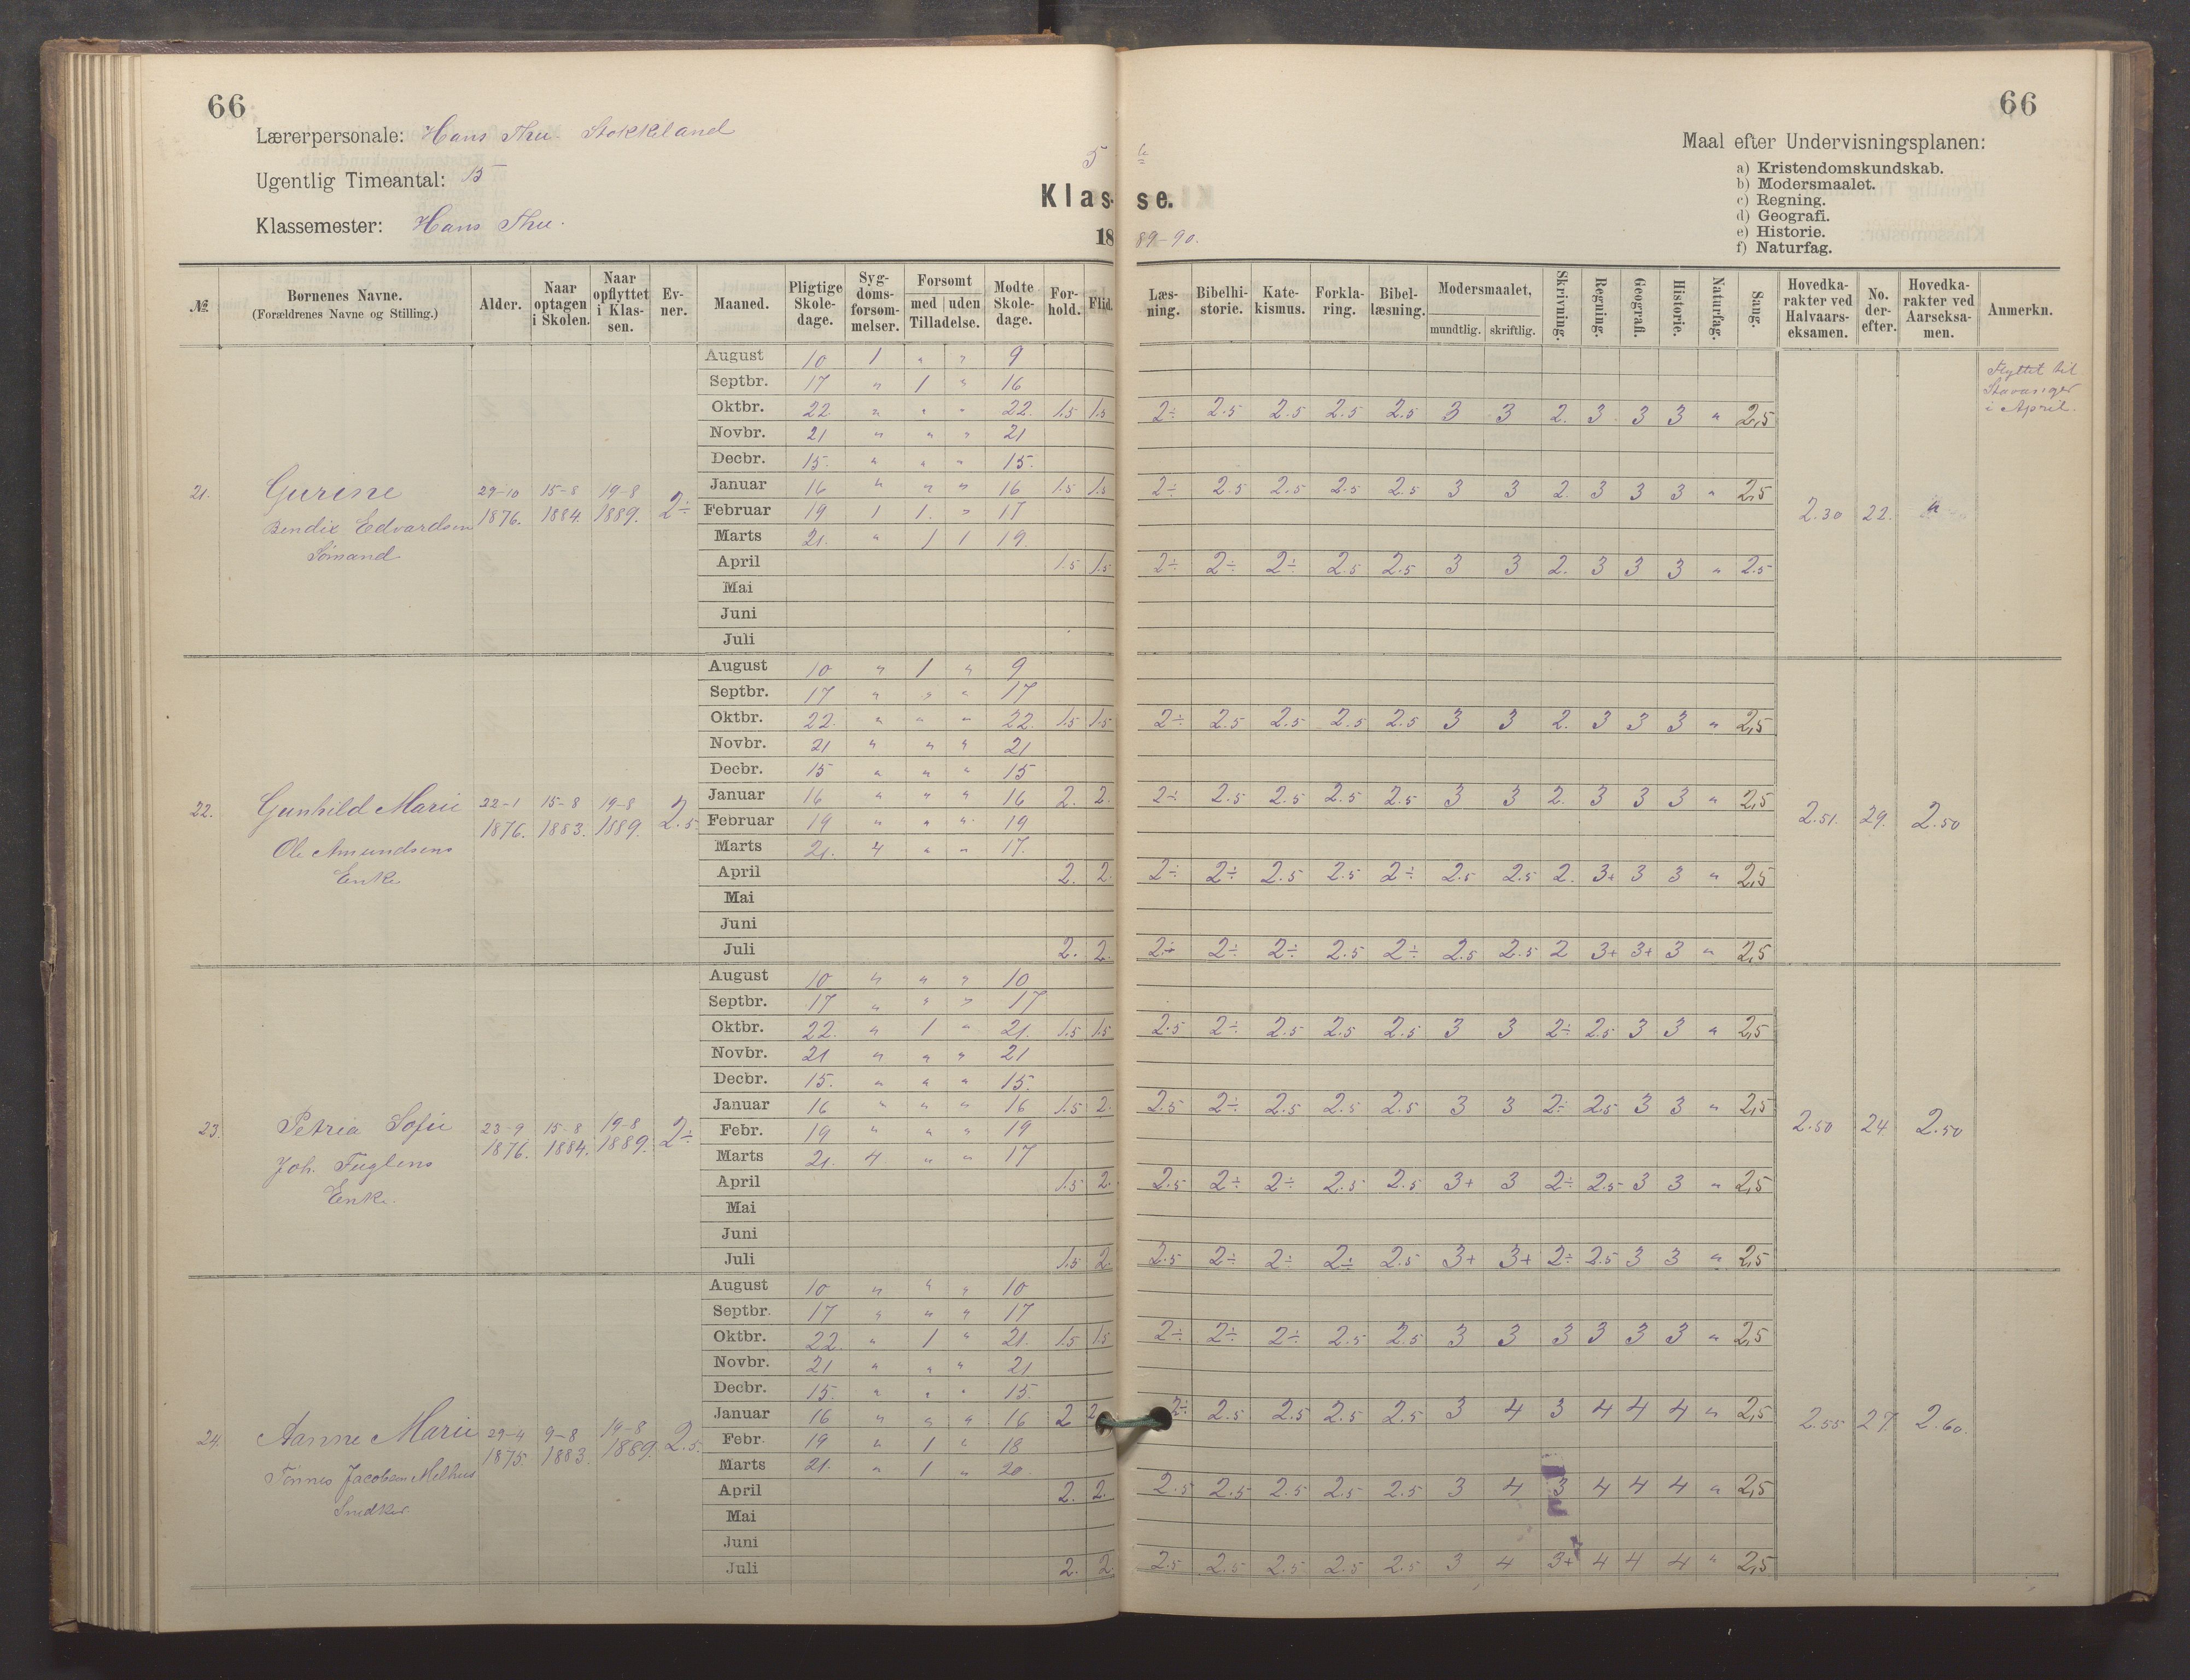 66
66
Lærerpersonale: Hans Thu. Stokkeland
Ugentlig Timeantal: 15
Klassemester: Hans Thu.
5te
Klas- se.
18 89-90.
Maal efter Undervisningsplanen:
a) Kristendomskundskab.
b) Modersmaalet.
c) Regning.
d) Geografi.
e) Historie.
f) Naturfag.
№ | Børnenes Navne. (Forældrenes Navne og Stilling.) | Alder. | Naar optagen i Skolen. | Naar opflyttet i Klassen. | Evner. | Maaned. | Pligtige Skoledage. | Sygdomsforsømmelser. | Forsømt med Tilladelse. | uden Tilladelse. | Mødte Skoledage. | Forhold. | Flid. | Læsning. | Bibelhistorie. | Katekismus. | Forklaring. | Bibellæsning. | Modersmaalet, mundtlig. | skriftlig. | Skrivning. | Regning. | Geografi. | Historie. | Naturfag. | Sang. | Hovedkarakter ved Halvaarseksamen. | No. derefter. | Hovedkarakter ved Aarseksamen. | Anmerkn.
21. Gurine
Bendix Edvardsen
Sømand
29-10 1876. | 15-8 1884. | 19-8 1889. | 2÷
August 10 1 " " 9
Septbr. 17 " 1 " 16
Oktbr. 22 " " " 22. 1.5 1.5 2÷ 2.5 2.5 2.5 2.5 3 3 2. 3 3 3 " 2,5
Novbr. 21 " " " 21
Decbr. 15. " " " 15.
Januar 16 " " " 16 1.5 1.5 2÷ 2.5 2.5 2.5 2.5 3 3 2. 3 3 3 " 2,5
Februar 19 1 1. " 17
Marts 21. " 1 1 19
April 1.5 1.5 2÷ 2÷ 2÷ 2.5 2.5 3 3 2. 3 3 3 " 2.5
Mai
Juni
Juli
2.30 22. "
Flyttet til
Stavanger
i April.
22. Gunhild Marie
Ole Amundsens
Enke
22-1 1876. | 15-8 1883. | 19-8 1889. | 2.5
August 10 " 1 " 9
Septbr. 17 " " " 17
Oktbr. 22. " " " 22. 1.5 1.5 2÷ 2.5 2.5 2.5 2.5 3 3 2. 3 3 3 " 2,5
Novbr. 21 " " " 21
Decbr. 15 " " " 15
Januar 16 " " " 16 2. 2. 2÷ 2.5 2.5 2.5 2.5 3 3 2. 3 3 3 " 2,5
Februar 19 " " " 19
Marts 21. 4 " " 17.
April 2. 2. 2÷ 2÷ 2.5 2.5 2÷ 2.5 2.5 2. 3+ 3 3 " 2,5
Mai
Juni
Juli 2. 2. 2÷ 2÷ 2÷ 2.5 2÷ 2.5 2.5 2 3+ 3+ 3 " 2,5
2.51. 29. 2.50
23. Petria Sofie
Joh. Fuglens
Enke.
23-9 1876. | 15-8 1884. | 19-8 1889. | 2÷
August 10 " " " 10
Septbr. 17 " " " 17
Oktbr. 22. " 1 " 21. 1.5 1.5 2.5 2÷ 2.5 2.5 2.5 3 3 2÷ 2.5 3 3 " 2,5
Novbr. 21 " " " 21
Decbr. 15. " " " 15.
Januar 16 " " " 16 1.5 2. 2.5 2÷ 2.5 2.5 2.5 3 3 2÷ 2.5 3 3 " 2,5
Febr. 19 " " " 19
Marts 21. 4. " " 17
April 1.5 2. 2.5 2÷ 2÷ 2.5 2.5 3+ 3 2÷ 2.5 3 3 " 2,5
Mai
Juni
Juli 1.5 2 2.5 2÷ 2÷ 2÷ 2.5 3+ 3+ 2÷ 2.5 3 3 " 2,5
2.50 24 2.50
24. Aanne Marie
Tønnes Jacobsen Melhus
Snedker.
29-4 1875. | 9-8 1883. | 19-8 1889. | 2.5.
August 10 " " " 10
Septbr. 17 " " " 17
Oktbr. 22. " 1 " 21. 1.5 1.5 2÷ 2÷ 2÷ 2.5 2.5 3 3 3 3 3 3 " 2,5
Novbr. 21 " " " 21
Decbr. 15. " " " 15
Januar 16 " " " 16 2 2 2÷ 2.5 2.5 2.5 2.5 3 4 3 4 4 4 " 2,5
Febr. 19 " 1 " 18
Marts 21. " 1 " 20.
April 2. 2. 2.5 2.5 2.5 2.5 2.5 3 4 3 4 4 4 " 2,5
Mai
Juni
Juli 2. 2. 2.5 2.5 2.5 2.5 2.5 3 4 3+ 4 4 4 " 2,5
2.55 27. 2.60.